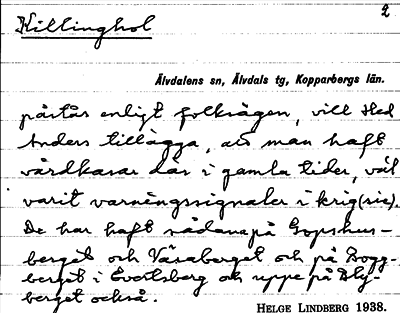 2
Killinghol
Älvdalens sn, Älvdals tg, Kopparbergs län.
påstås enligt folksägen, vill Hed
Anders tillägga, att man haft
vårdkasar där i gamla tider, väl
varit varningssignaler i krig (sic).
De har haft sådana på Gopshus-
berget och Väsaberget och på Dogg-
berget i Evertsberg och uppe på Bly-
berget också.
HELGE LINDBERG 1938.